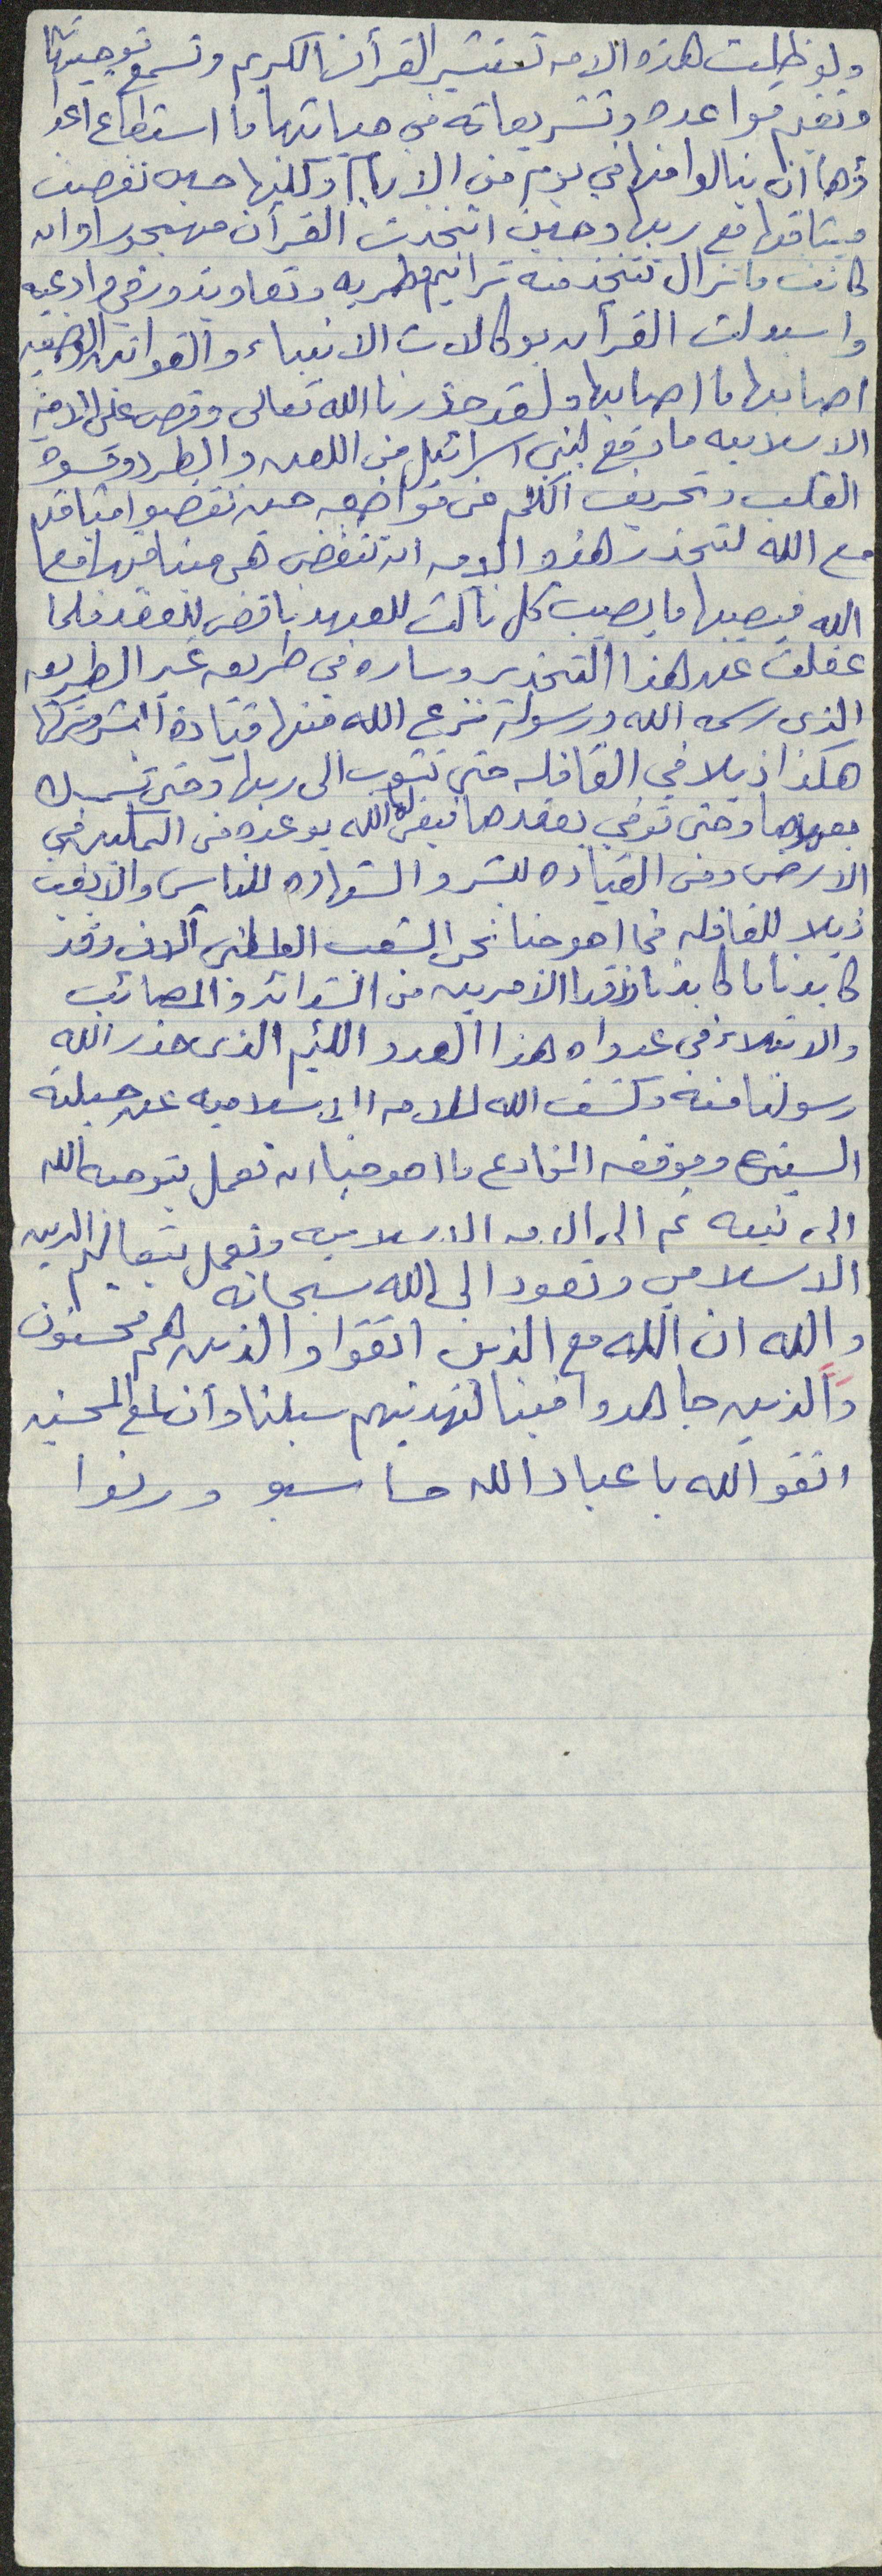 ولو ظلت هذه الامه تستشير القرأن الكريم وتسمع توجيهاتها
وتقيم قواعده وتشريعاته في حياتها ما استطاع اعدا
ؤها ان ينالوا منها في يوم من الايام ولكنها حين نقضت
ميثاقها مع ربها وحين اتخذت القرأن مهجورا وان
كانت ما تزال تتخذ منه ترانيم مطربه وتعاويذ ورقي وادعيه
واسبدلت القرأن بوكالات الانبياء والقوانين الوضعيه
اصابها ما اصابها ولقد حذرنا الله تعالى وقص على الامة
الاسلاميه ما وقع لبني اسرائيل من اللعن والطرد وقسوة
القلب وتحريف الكلم من مواضعه حين نقضوا ميثاقهم
مع الله لتحذر هذه الامه ان تنقض هي ميثاقها مع
الله فيصيبها ما يصيب كل ناكث للعهد ناقض للعقد فلما
غفلت عن هذا التحذير وساره في طريق غير الطريق
الذي رسمه الله ورسولة نزع الله منها قيادة البشر وتركها
هكذا ذيلا في القافله حتى تتوب الى ربها وحتى تتمسك
بعهدها وحتى توفي بعقدها فيفي لها الله بوعده من التمكين في
الارض ومن القياده للبشر والشهاده للناس والا بقيت
ذيلا للقافله فما احوجنا نحن الشعب الفلسطيني ألان وقد
كابدنا ما كابدنا وذقنا الامرين من الشدائد والمصائب
والابتلاء في عدواه هذا العدو اللئيم الذي حذر الله
رسولنا منه وكشف الله للامه الاسلاميه عن جبلته
السيئه وموقفه المخادع ما احوجنا ان نعمل بتوجيه الله
الى نبيه ثم الى الامه الاسلاميه ونعمل بتعاليم الدين
الاسلامي ونعود الى الله سبحانه
والله ان الله مع الذين اتقوا والذين هم محسنون
والذين جاهدوا فينا لنهدينهم سبلنا وأن لمع المحسنين
اتقو الله يا عباد الله حاسبو وزنوا